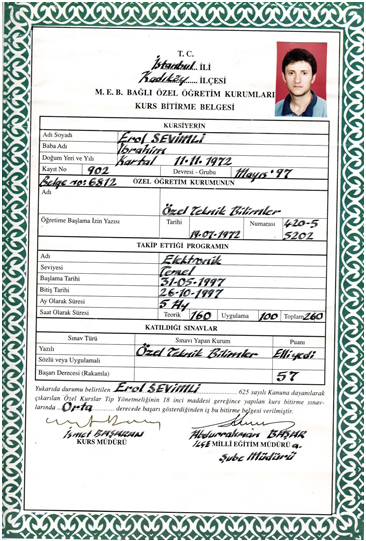 T. C.
İstanbul İLİ
Kadıköy İLÇESİ
M. E. B. BAĞLI ÖZEL ÖĞRETİM KURUMLARI
KURS BİTİRME BELGESİ
KURSİYERİN
Adı Soyadı Erol SEVİMLİ
Baba Adı İbrahim
Doğum Yeri ve Yılı Kartal 11.11.1972
Kayıt No 902 Devresi - Grubu Mayıs'97
Belge no: 6812 ÖZEL ÖĞRETİM KURUMUNUN
Adı Özel Teknik Bilimler
Öğretime Başlama İzin Yazısı Tarihi 19.07.1972 Numarası 420-5 5202
TAKİP ETTİĞİ PROGRAMIN
Adı Elektronik
Seviyesi Temel
Başlama Tarihi 31-05-1997
Bitiş Tarihi 26-10-1997
Ay Olarak Süresi 5 Ay
Saat Olarak Süresi Teorik 160 Uygulama 100 Toplam 260
KATILDIĞI SINAVLAR
Sınav Türü Sınavı Yapan Kurum Puanı
Yazılı Özel Teknik Bilimler Elliyedi
Sözlü veya Uygulamalı
Başarı Derecesi (Rakamla) 57
Yukarıda durumu belirtilen Erol SEVİMLİ 625 sayılı Kanuna dayanılarak
çıkarılan Özel Kurslar Tip Yönetmeliğinin 18 inci maddesi gereğince yapılan kurs bitirme sınav-
larında Orta derecede başarı gösterdiğinden iş bu bitirme belgesi verilmiştir.
İsmet
KURS MÜDÜRÜ
Abdurrahman BAŞAR
İLÇE MİLLİ EĞİTİM MÜDÜRÜ a.
Şube Müdürü